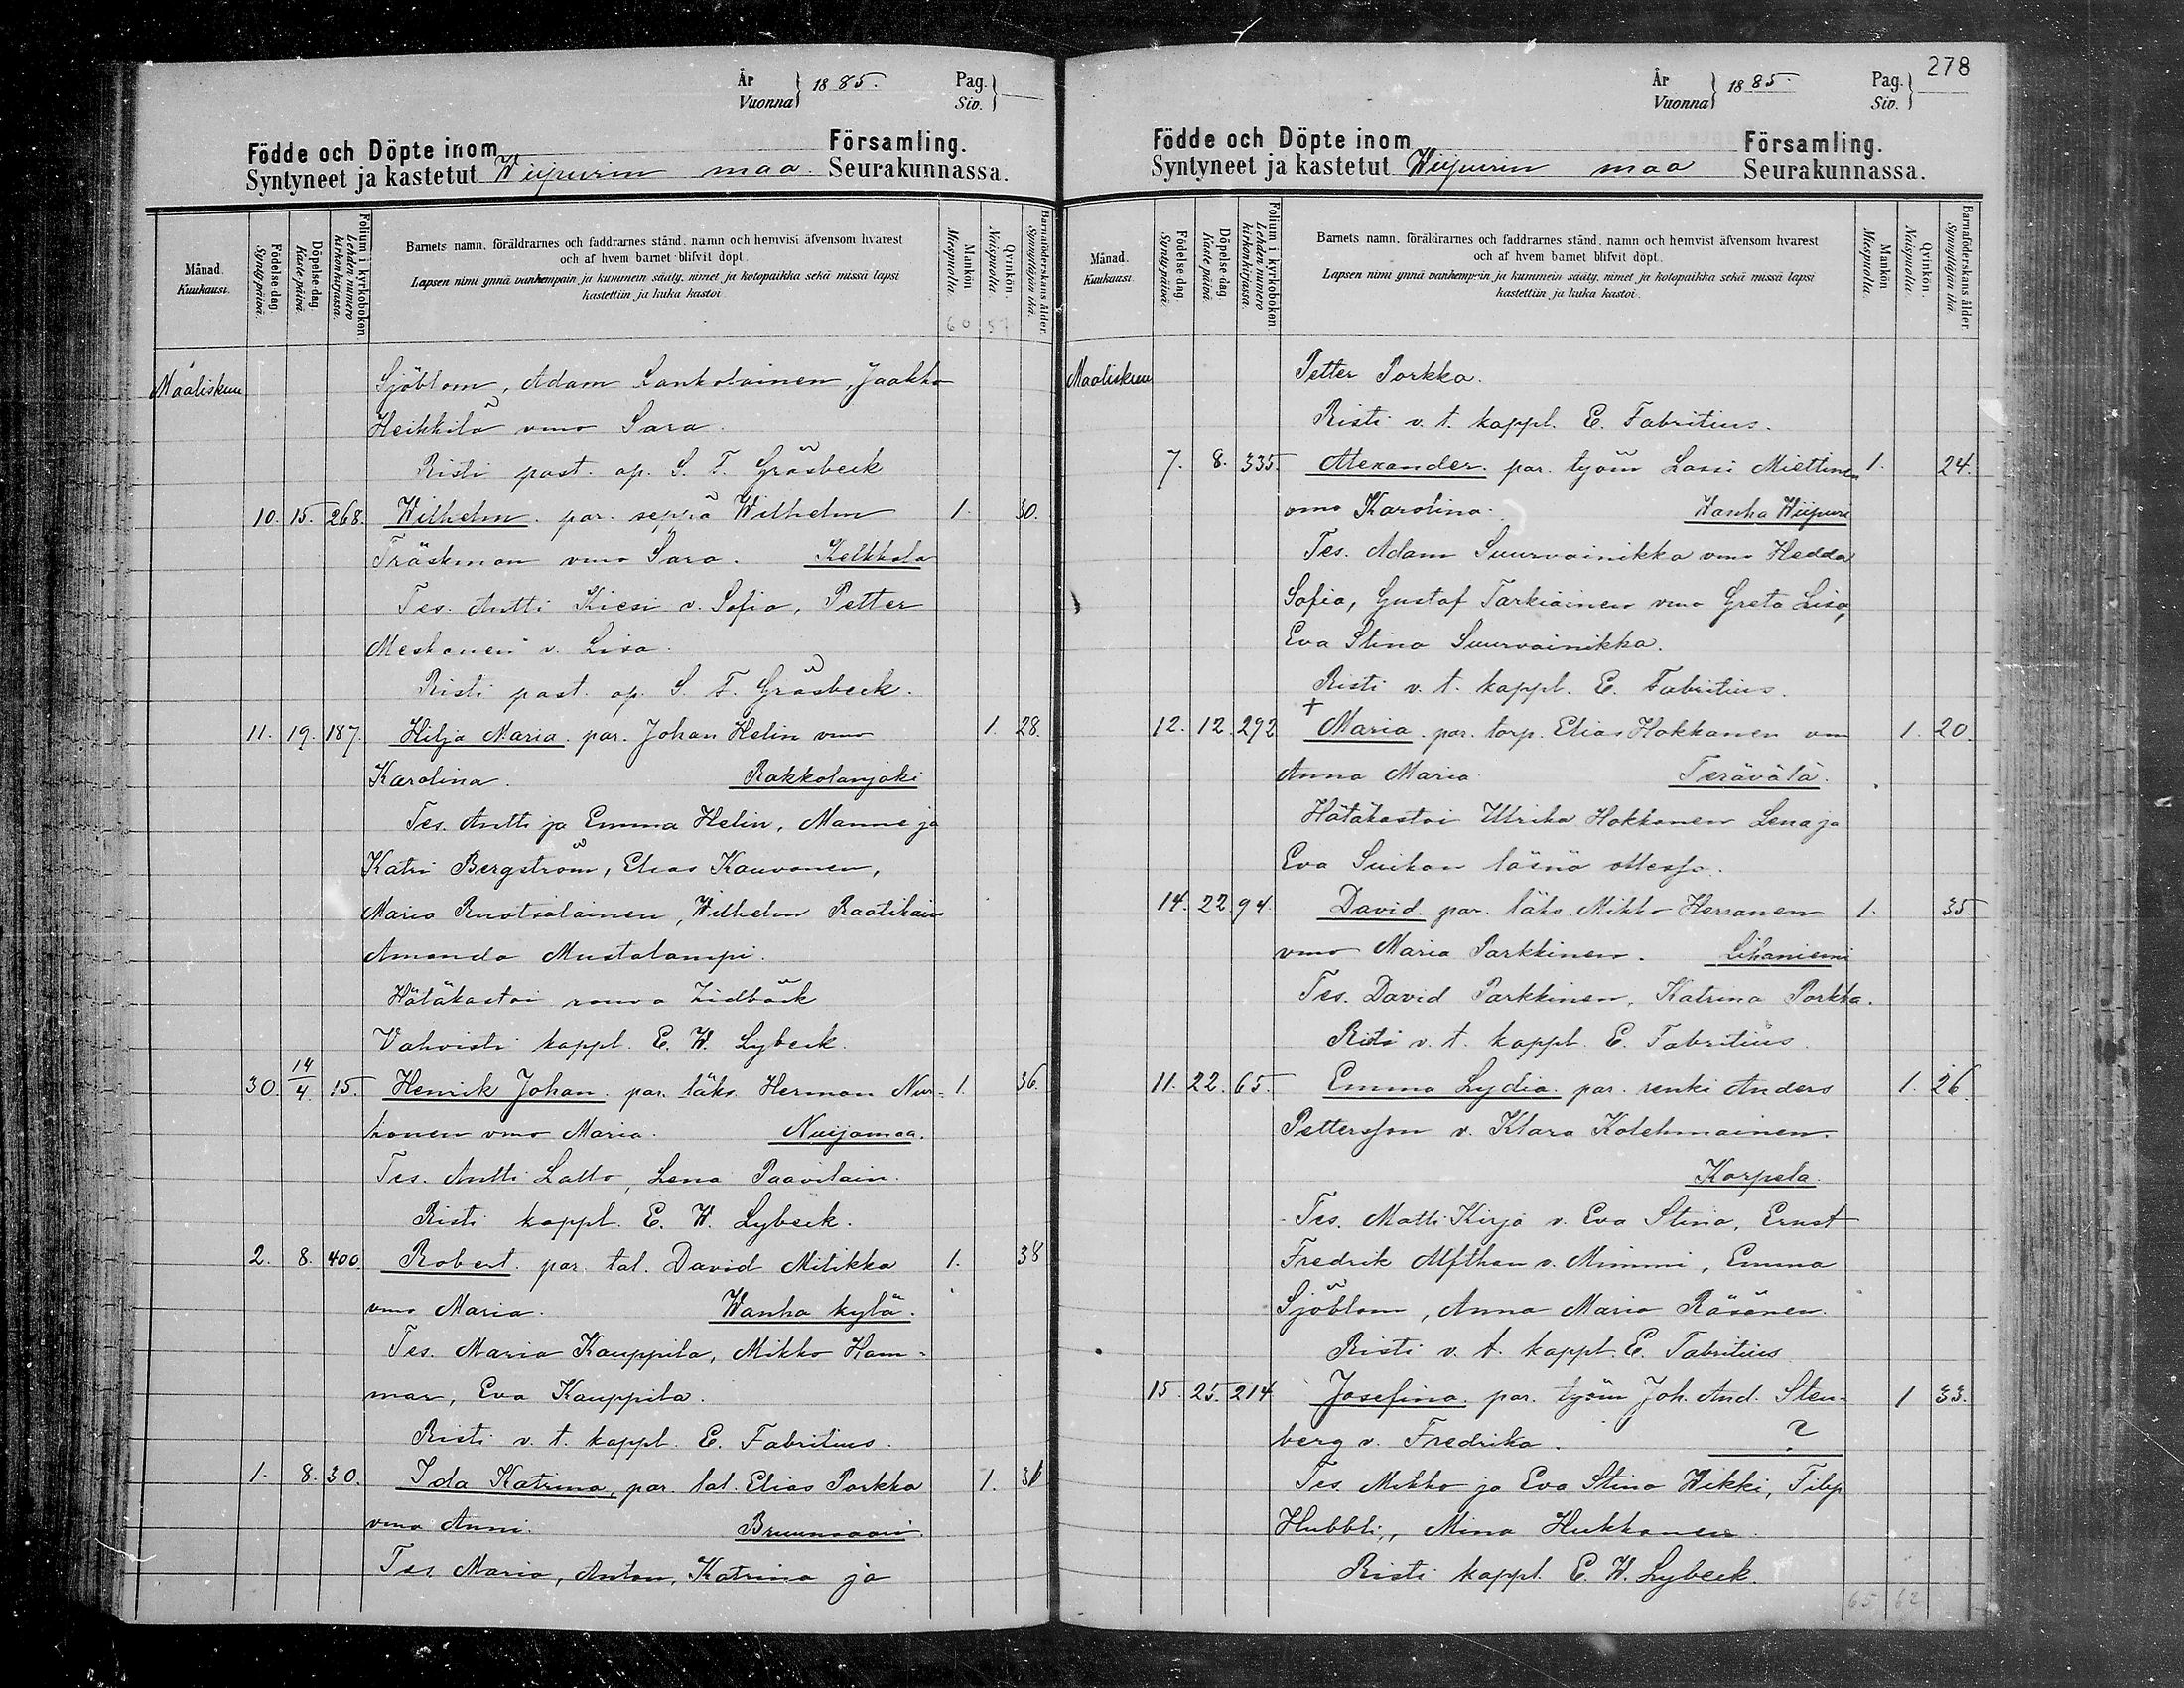 År
Vuonna } 1885.
Pag.
Siv. }
Födde och Döpte inom Församling.
Syntyneet ja kastetut Wiipurin maa. Seurakunnassa.
Månad.
Kuukausi.
Födelse dag.
Synty päivä.
Döpelse dag.
Kaste päivä.
Folium i kyrkoboken.
Lehden numero kirkonkirjassa.
Barnets namn, föräldrarnes och faddrarnes stånd, namn och hemvist äfvensom hvarest
och af hvem barnet blifvit döpt.
Lapsen nimi ynnä vanhempain ja kummein sääty, nimet ja kotopaikka sekä missä lapsi
kastettiin ja kuka kastoi.
Mankön.
Miespuolia.
Qvinkön.
Naispuolia.
Barnaföderskans ålder.
Synnyttäjän ikä.
60 57
Maaliskuu
Sjöblom, Adam Lankolainen, Jaakko
Heikkilä vmo Sara.
Risti past. ap. S. F. Gräsbeck
10. 15. 268. Wilhelm. par. seppä Wilhelm 1. 30.
Träskman vmo Sara. Kelkkala
Tes. Antti Kiesi v. Sofia, Petter
Meskanen v. Lisa.
Risti past. ap. S. F. Gräsbeck.
11. 19. 187. Hilja Maria. par. Johan Helin vmo 1. 28.
Karolina. Rakkolanjoki
Tes. Antti ja Emma Helin, Manne ja
Katri Bergström, Elias Kauvonen,
Maria Ruotsalainen, Wilhelm Raatikain
Amanda Mustalampi.
Hätäkastoi rouva Lidbäck
Vahvisti kappl. E. W. Lybeck.
30. 14/4. 15. Henrik Johan. par. läks. Herman Nur- 1. 36.
honen vmo Maria. Nuijamaa.
Tes. Antti Latto, Lena Paavilain.
Risti kappl. E. W. Lybeck.
2. 8. 400. Robert. par. tal. David Mitikka 1. 38
vmo Maria. Wanha kylä.
Tes. Maria Kauppila, Mikko Ham-
mar, Eva Kauppila.
Risti v. t. kappl. E. Fabritius.
1. 8. 30. Ida Katrina, par. tal. Elias Porkka 1. 31
vmo Anni.
Tes. Maria, Anton, Katrina ja
278
År
Vuonna } 1885.
Pag.
Siv. }
Födde och Döpte inom Församling.
Syntyneet ja kastetut Wiipurin maa Seurakunnassa.
Månad.
Kuukausi.
Födelse dag.
Synty päivä.
Döpelse dag.
Kaste päivä.
Folium i kyrkoboken.
Lehden numero kirkonkirjassa.
Barnets namn, föräldrarnes och faddrarnes stånd, namn och hemvist äfvensom hvarest
och af hvem barnet blifvit döpt.
Lapsen nimi ynnä vanhempain ja kummein sääty, nimet ja kotopaikka sekä missä lapsi
kastettiin ja kuka kastoi.
Mankön.
Miespuolia.
Qvinkön.
Naispuolia.
Barnaföderskans ålder.
Synnyttäjän ikä.
Maaliskuu
Petter Porkka.
Risti v. t. kappl. E. Fabritius.
7. 8. 335. Alexander. par. työm Lassi Miettinen 1. 24.
vmo Karolina. Wanha Wiipuri
Tes. Adam Suurvainikka vmo Hedda
Sofia, Gustaf Tarkiainen vmo Greta Lisa,
Eva Stina Suurvainikka.
Risti v. t. kappl. E. Fabritius.
12. 12. 292 + Maria. par. torp. Elias Hokkanen vm 1. 20.
Anna Maria. Terävälä.
Hätäkastoi Ulrika Hokkanen Lena ja
Eva Suikan läsnä ollessa.
14. 22. 94. David. par. läks. Mikko Herranen 1. 35.
vmo Maria Parkkinen. Lihaniemi
Tes. David Parkkinen, Katrina Porkka.
Risti v. t. kappl. E. Fabritius.
11. 22. 65. Emma Lydia. par. renki Anders 1. 26.
Pettersson v. Klara Kolehmainen.
Karpela.
Tes. Matti Kirjo v. Eva Stina, Ernst
Fredrik Alfthan v. Mimmi, Emma
Sjöblom, Anna Maria Räsänen.
Risti v. t. kappl. E. Fabritius
15. 25. 214 Josefina. par. työm Joh. And. Sten- 1 33.
berg v. Fredrika. ?
Tes. Mikko ja Eva Stina Wikki, Filip
Hubbli, Mina Hukkanen.
Risti kappl. E. W. Lybeck.
65 62